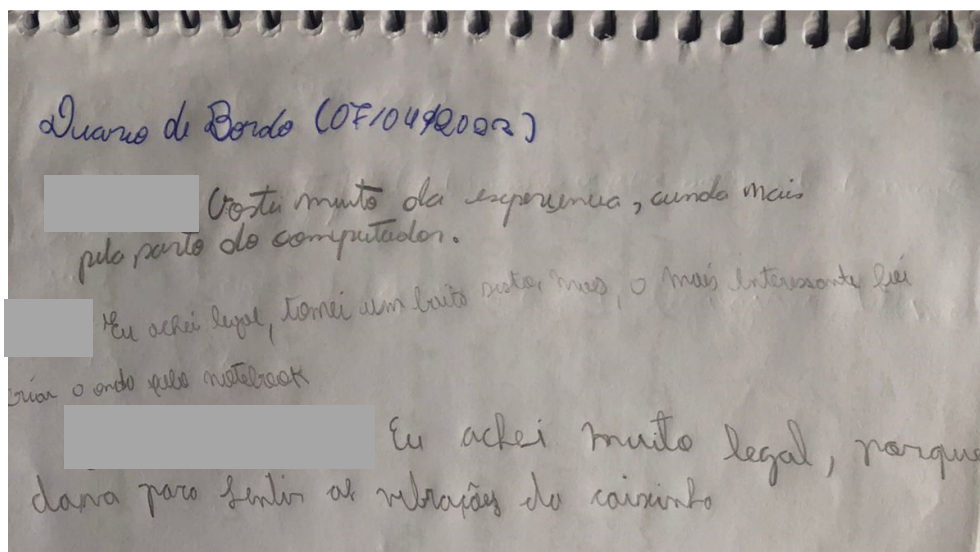 Diario de Bordo (07/04/2022)
Gostei muito da experiencia, ainda mais
pela parte do computador.
Eu achei legal, tomei um baita susto, mas, o mais interessante foi
criar o onda pelo notebook
Eu achei muito legal, porque
dava para sentir as vibrações da caixinha